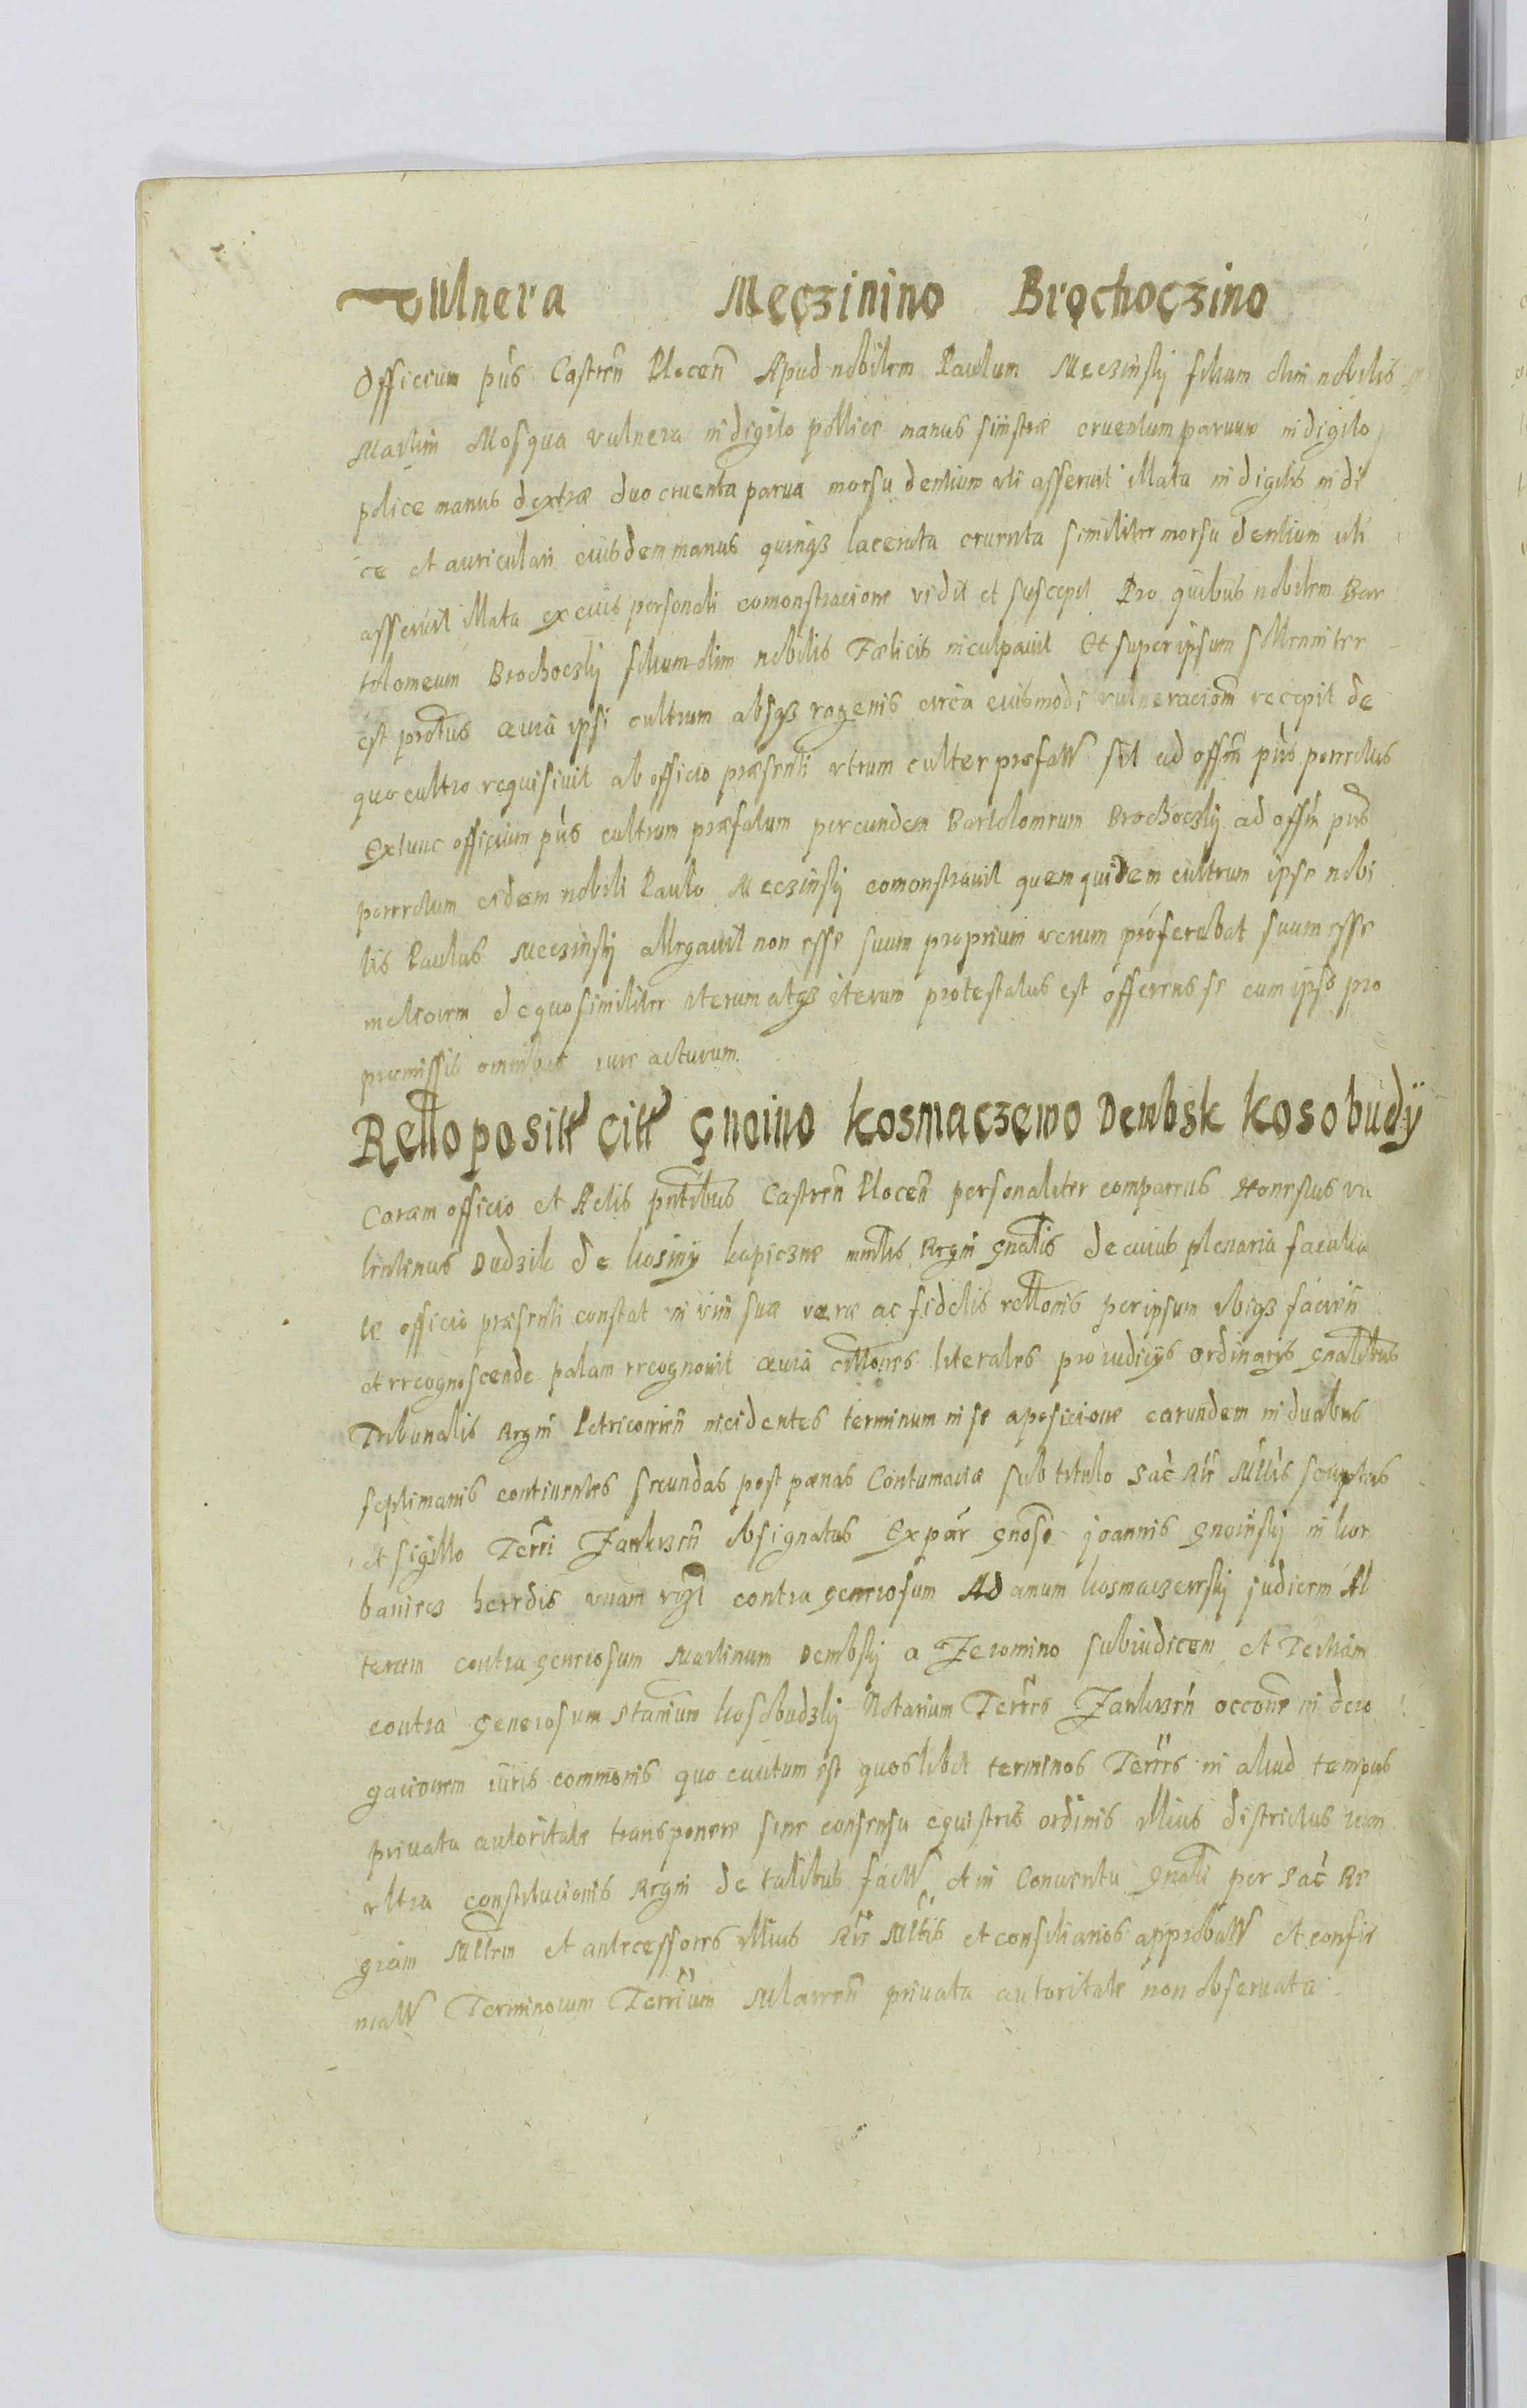 Vulnera Meczinino Brochoczino
Officium pñs Castreñ Ploceñ Apud nobilem Paulum Meczinskÿ filium olim nobilis
Martini Mosqua vulnera in digito pollice manus sinistræ cruentum paruum in digito
police manus dextræ duo cruenta parua morsu dentium uti asseruit illata in digitis indi
ce et auriculari eiusdem manus quinqz lacerata cruenta similiter morsu dentium uti
asseruit illata ex eius personali comonstracione vidit et suscepit Pro quibus nobilem Bar
tolomeum Brochoczkÿ filium olim nobilis Fælicis inculpauit Et super ipsum sollenniter
est protus quia ipsi cultrum absqz vagenis circa eiusmodi vulneracionem recepit de
quo cultro requisiuit ab officio præsenti utrum culter præfatt sit ad offm pñs porrectus
Extunc officium pñs cultrum præfatum per eundem Bartolomeum Brochoczkÿ ad offm pñs
porrectum eidem nobili Paulo Meczinskÿ comonstrauit quem quidem cultrum ipse nobi
lis Paulus Meczinskÿ allegauit non esse suum proprium verum proferebat suum esse
meliorem de quo similiter iterum atqz iterum protestatus est offerens se cum ipso pro
præmissis omnibus iure acturum
Rello positt citt Gnoino Kosmaczewo Dembsk Kosobudÿ
Coram officio et Actis pntibus Castreñ Ploceñ personaliter comparens Honestus Va
lentinus Dudzik de Kosinÿ kapicznæ mnlis Regni Gnalis de cuius plenaria faculta
te officio præsenti constat in vim suæ veræ ac fidelis rellonis per ipsum ubiqz facien
et recognoscende palam recognouit quia cittones literales pro iudicÿs ordinarÿs gnalibus
Tribunalis Regni Petricouieñ incidentes terminum in se a posicione earundem in duabus
septimanis continentes secundas post pænas Contumaciæ sub titulo Sac Rie Mttis scriptas
et sigillo Terri Zawkrzeñ obsignatas Ex par Gnosi Joannis Gnoinskÿ in Kor
banicz heredis unam vizt contra generosum Adamum Kosmaczewskÿ judicem Al
teram contra generosum Martinum Dembskÿ a Jeromino subiudicem et Tertiam
contra Generosum Stanium Kosobudzkÿ Notarium Terres Zawkrzeñ occone in dero
gacionem iuris commonis quo cautum est quoslibet terminos Terres in aliud tempus
priuata autoritate transponere sine consensu equistris ordinis illius districtus num
ultra constitucionis Regni de talibus factt et in Conuentu Gnali per Sac Re
giam Mttem et antecessores illius Rie Mttis et consiliarios approbatt et confir
matt Terminorum Terrium Mlawen priuata autoritate non obseruata